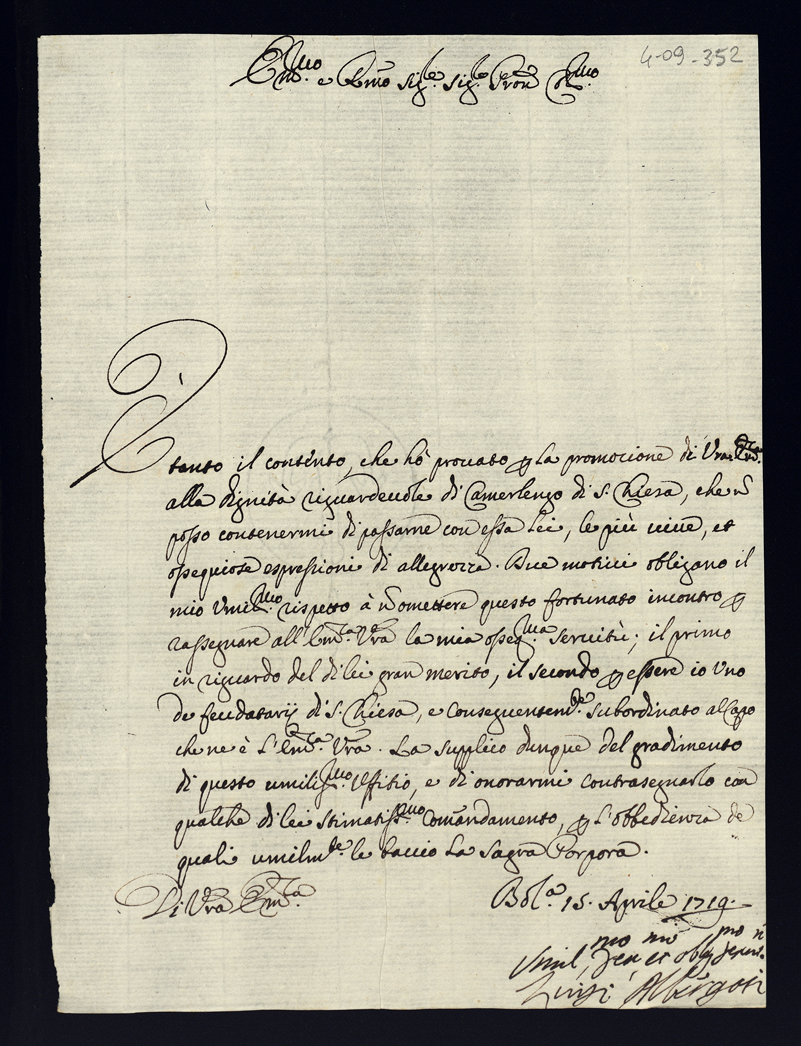 4-09-352
Em.mo e Rmo Sig.e Sig.e Pron Col.mo
È tanto il contento, che hò prouato p la promocione di Vra Em.za
alla dignità riguardeuole di Camerlengo di S. Chiesa, che ñ
posso contenermi di passarne con essa Lei, le più viue, et
ossequiose espressioni di allegrezza. Due motiui obligano il
mio Vmil.mo rispetto à ñ omettere questo fortunato incontro p
rassegnare all'Em.za Vra la mia osseq.ma seruitù; il primo
in riguardo del di lei gran merito, il secondo p essere io Vno
de feudatarij di S. Chiesa, e conseguentem.te subordinato al Capo
che ne è l'Em.za Vra. La supplico dunque del gradimento
di questo umiliss.mo Vffitio, e di onorarmi contrasegnarlo con
qualche di lei stimatiss.mo comandamento, p l'obbedienza de
quali umilm.te le baccio La Sagra Porpora.
Di Vra Em.za
Bol.a 15. Aprile 1719.
Vmil.mo Deu.mo et oblig.mo
Luigi Albergoti